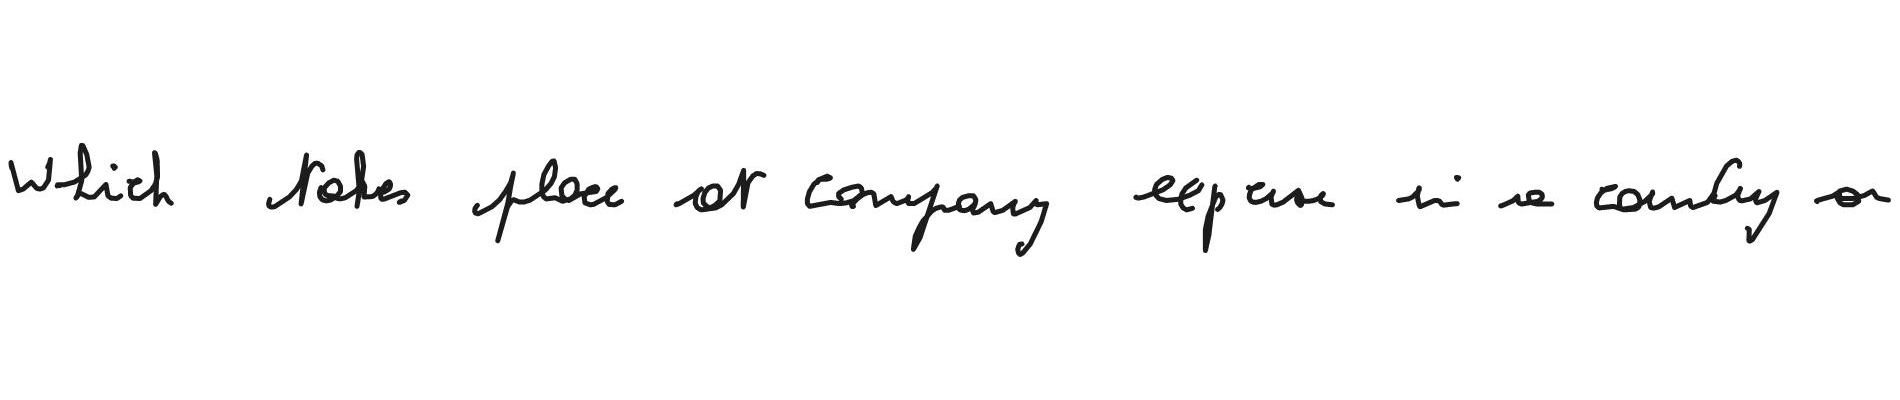 Which takes place at company expense in a country or